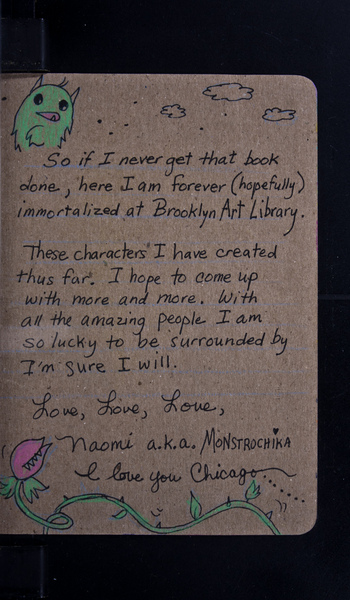 So if I never get that book
done, here I am forever (hopefully)
immortalized at Brooklyn Art Library.
These characters I have created
thus far. I hope to come up
with more and more. With
all the amazing people I am
so lucky to be surrounded by
I'm sure I will.
Love, Love, Love,
Naomi a.k.a. MONSTROCHIKA
I love you Chicago